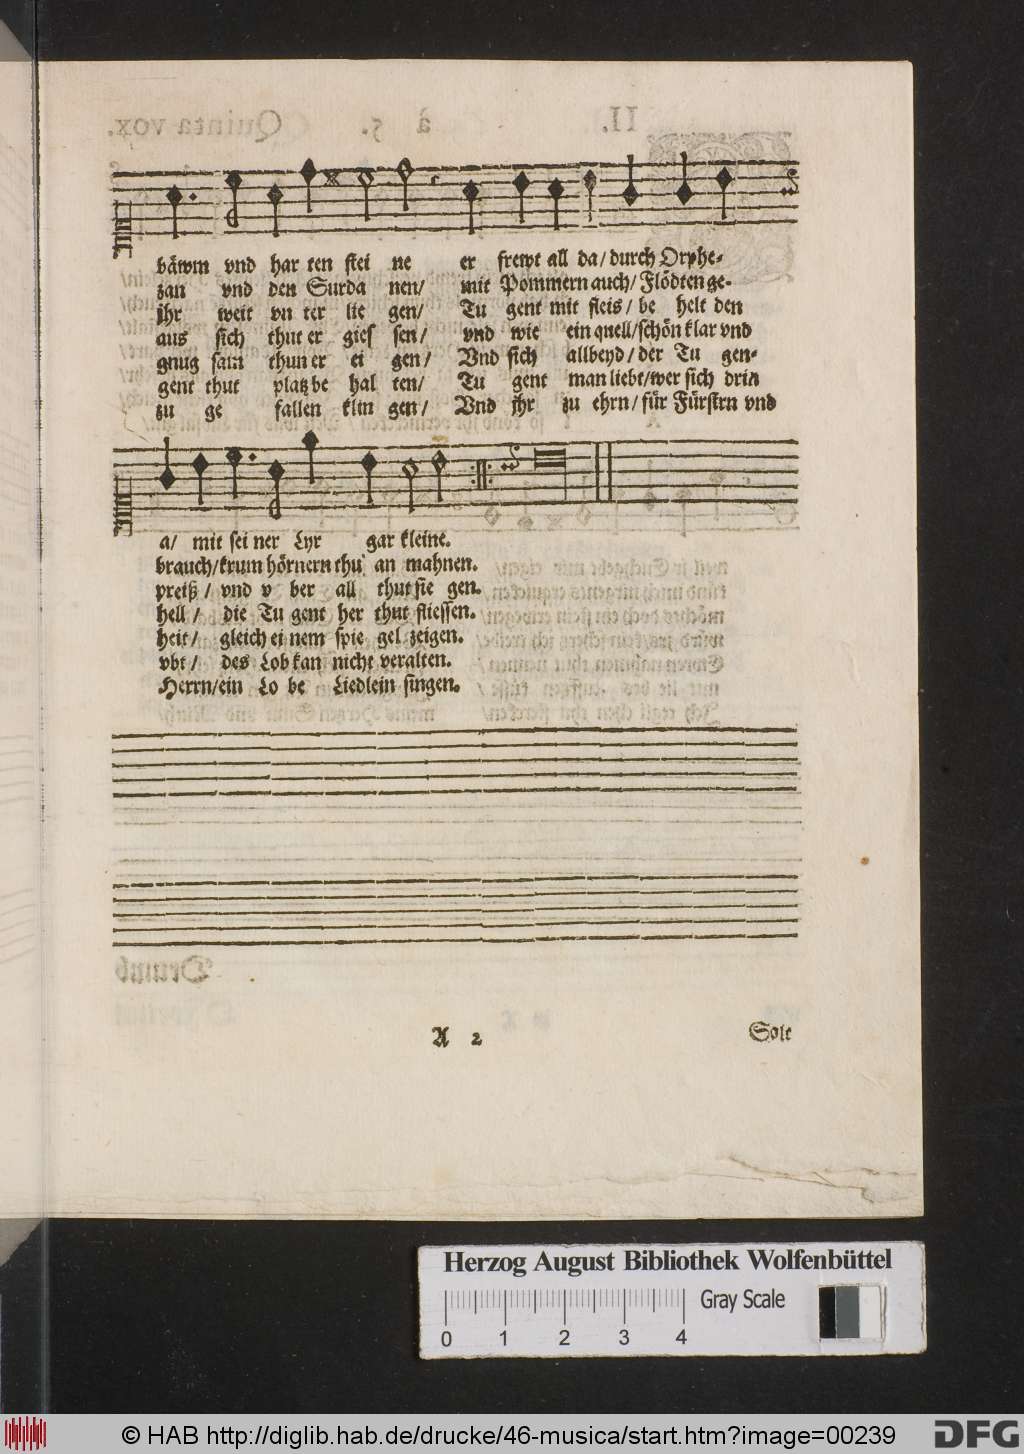 bäwm vnd har ten stei ne er frewt all da/ durch Orphe-
zan vnd den Surda nen/ mit Pommern auch/ Flödten ge-
jhr weit vn ter lie gen/ Tu gent mit fleis/ be helt den
aus sich thut er gies sen/ vnd wie ein quell/ schön klar vnd
gnug sam thun er ei gen/ Vnd sich allbeyd/ der Tu gen-
gent thut platz be hal ten/ Tu gent man liebt/ wer sich drin
zu ge fallen klin gen/ Vnd jhr zu ehrn/ für Fürstrn vnd
a/ mit sei ner Lyr gar kleine.
brauch/ krum hörnern thu an mahnen.
preiß/ vnd v ber all thut sie gen.
hell/ die Tu gent her thut fliessen.
heit/ gleich ei nem spie gel zeigen.
vbt/ des Lob kan nicht veralten.
Herrn/ ein Lo be Liedlein singen.
A 2
Sole
Herzog August Bibliothek Wolfenbüttel
Gray Scale
0 1 2 3 4
© HAB http://diglib.hab.de/drucke/46-musica/start.htm?image=00239
DFG